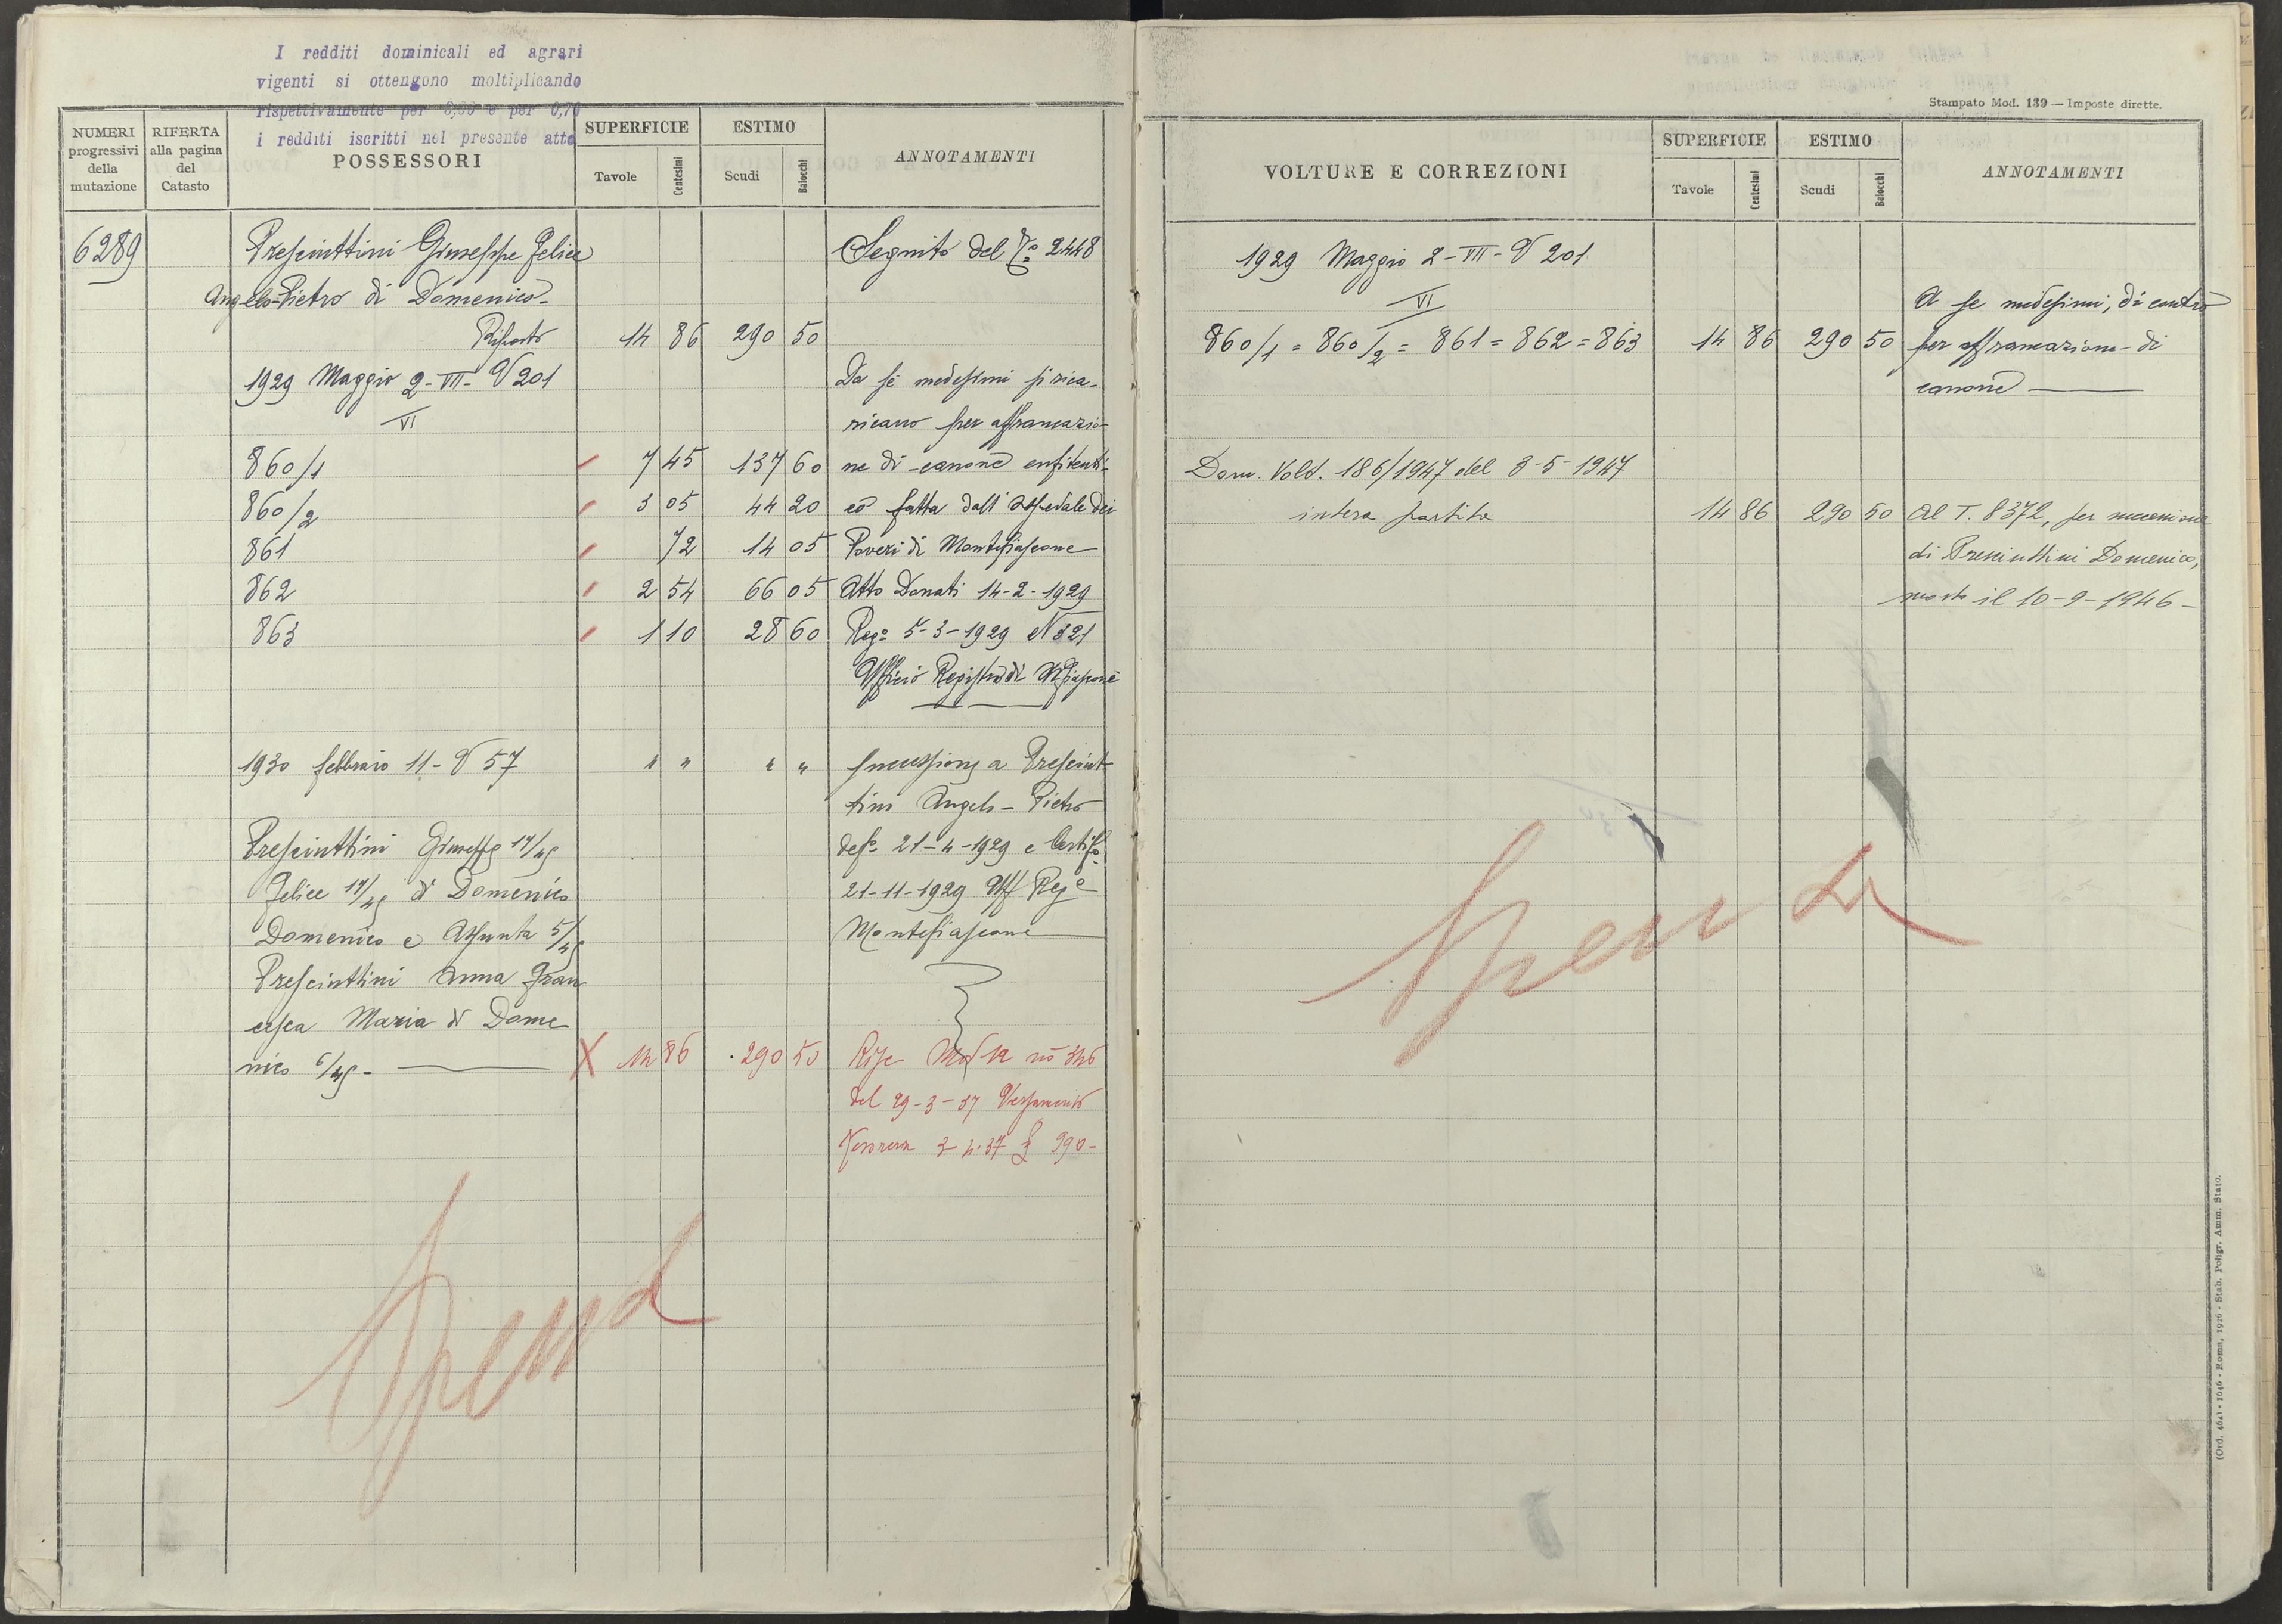 I redditi dominicali ed agrari
vigenti si ottengono moltiplicando
rispettivamente per e per 0,70
i redditi iscritti nel presente atto
NUMERI progressivi della mutazione
RIFERTA alla pagina del Catasto
POSSESSORI
SUPERFICIE
Tavole Centesimi
ESTIMO
Scudi Baiocchi
ANNOTAMENTI
6289 Presciuttini Giuseppe Felice Seguito del 2448
Angelo-Pietro di Domenico-
Riporto 14 86 290 50
1929 Maggio 2-VII-V 201 Da sé medesimi si rica-
VI ricano per affrancazio-
860/1 7 45 137 60 ne di canone enfiteuti-
860/2 3 05 44 20 co fatta dall' Ospedale dei
861 72 14 05 Poveri di Montefiascone
862 2 54 66 05 Atto Donati 14-2-1929
863 1 10 28 60 Rego 5-3-1929 N 321
Ufficio Registro di
1930 febbraio 11-V 57 " " " " Successione a Presciut-
tini Angelo-Pietro
Presciuttini Giuseppe 17/45 21-4-1929 e Certif.
Felice 17/45 di Domenico 21-11-1929 Uff Rege
Domenico e Assunta 5/45 Montefiascone
Presciuttini Anna Fran
cesca Maria di Dome
nico 6/45- X 14 86 290 50 Mod 12 no
del 29-3-37 Versamento
37 £ 990-
Spenta
Stampato Mod. 139 — Imposte dirette.
VOLTURE E CORREZIONI
SUPERFICIE
Tavole Centesimi
ESTIMO
Scudi Baiocchi
ANNOTAMENTI
1929 Maggio 2-VII-V 201
VI A se medesimi, di contro
860/1 = 860/2 = 861 = 862 = 863 14 86 290 50 per affrancazione di
canone
Dom. Volt. 186/1947 del 3-5-1947
intera partita 14 86 290 50 Al T. 8372, per successione
di Presciuttini Domenico,
morto il 10-9-1946-
Spenta
(Ord. 464) - 1046 - Roma, 1926 - Stab. Poligr. Amm. Stato.